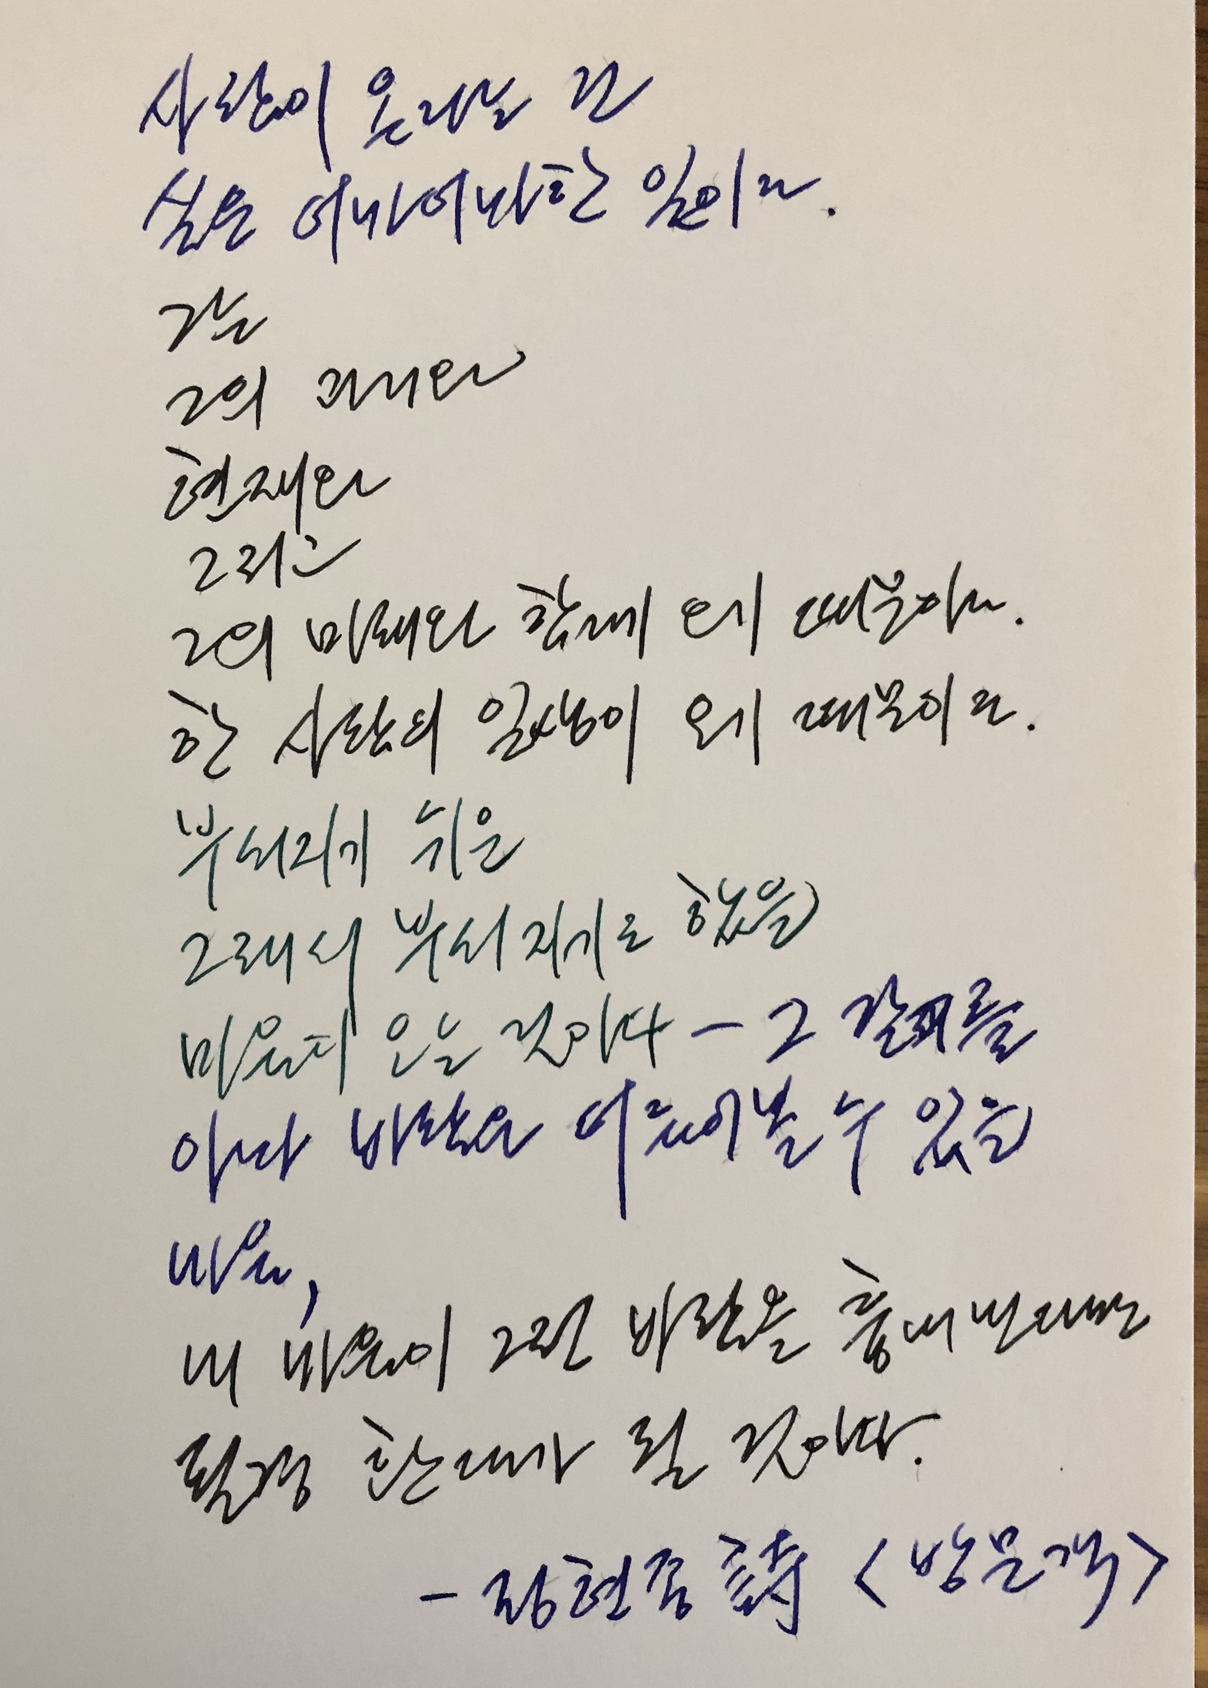 사람이 온다는 건
실은 어마어마한 일이다.
그는
그의 과거와
현재와
그리고
그의 미래와 함께 오기 때문이다.
한 사람의 일생이 오기 때문이다.
부서지기 쉬운
그래서 부서지기도 했을
마음이 오는 것이다 - 그 갈피를
아마 바람은 더듬어볼 수 있을
마음,
내 마음이 그런 바람을 흉내낸다면
필경 환대가 될 것이다.
- 정현종 詩 <방문객>